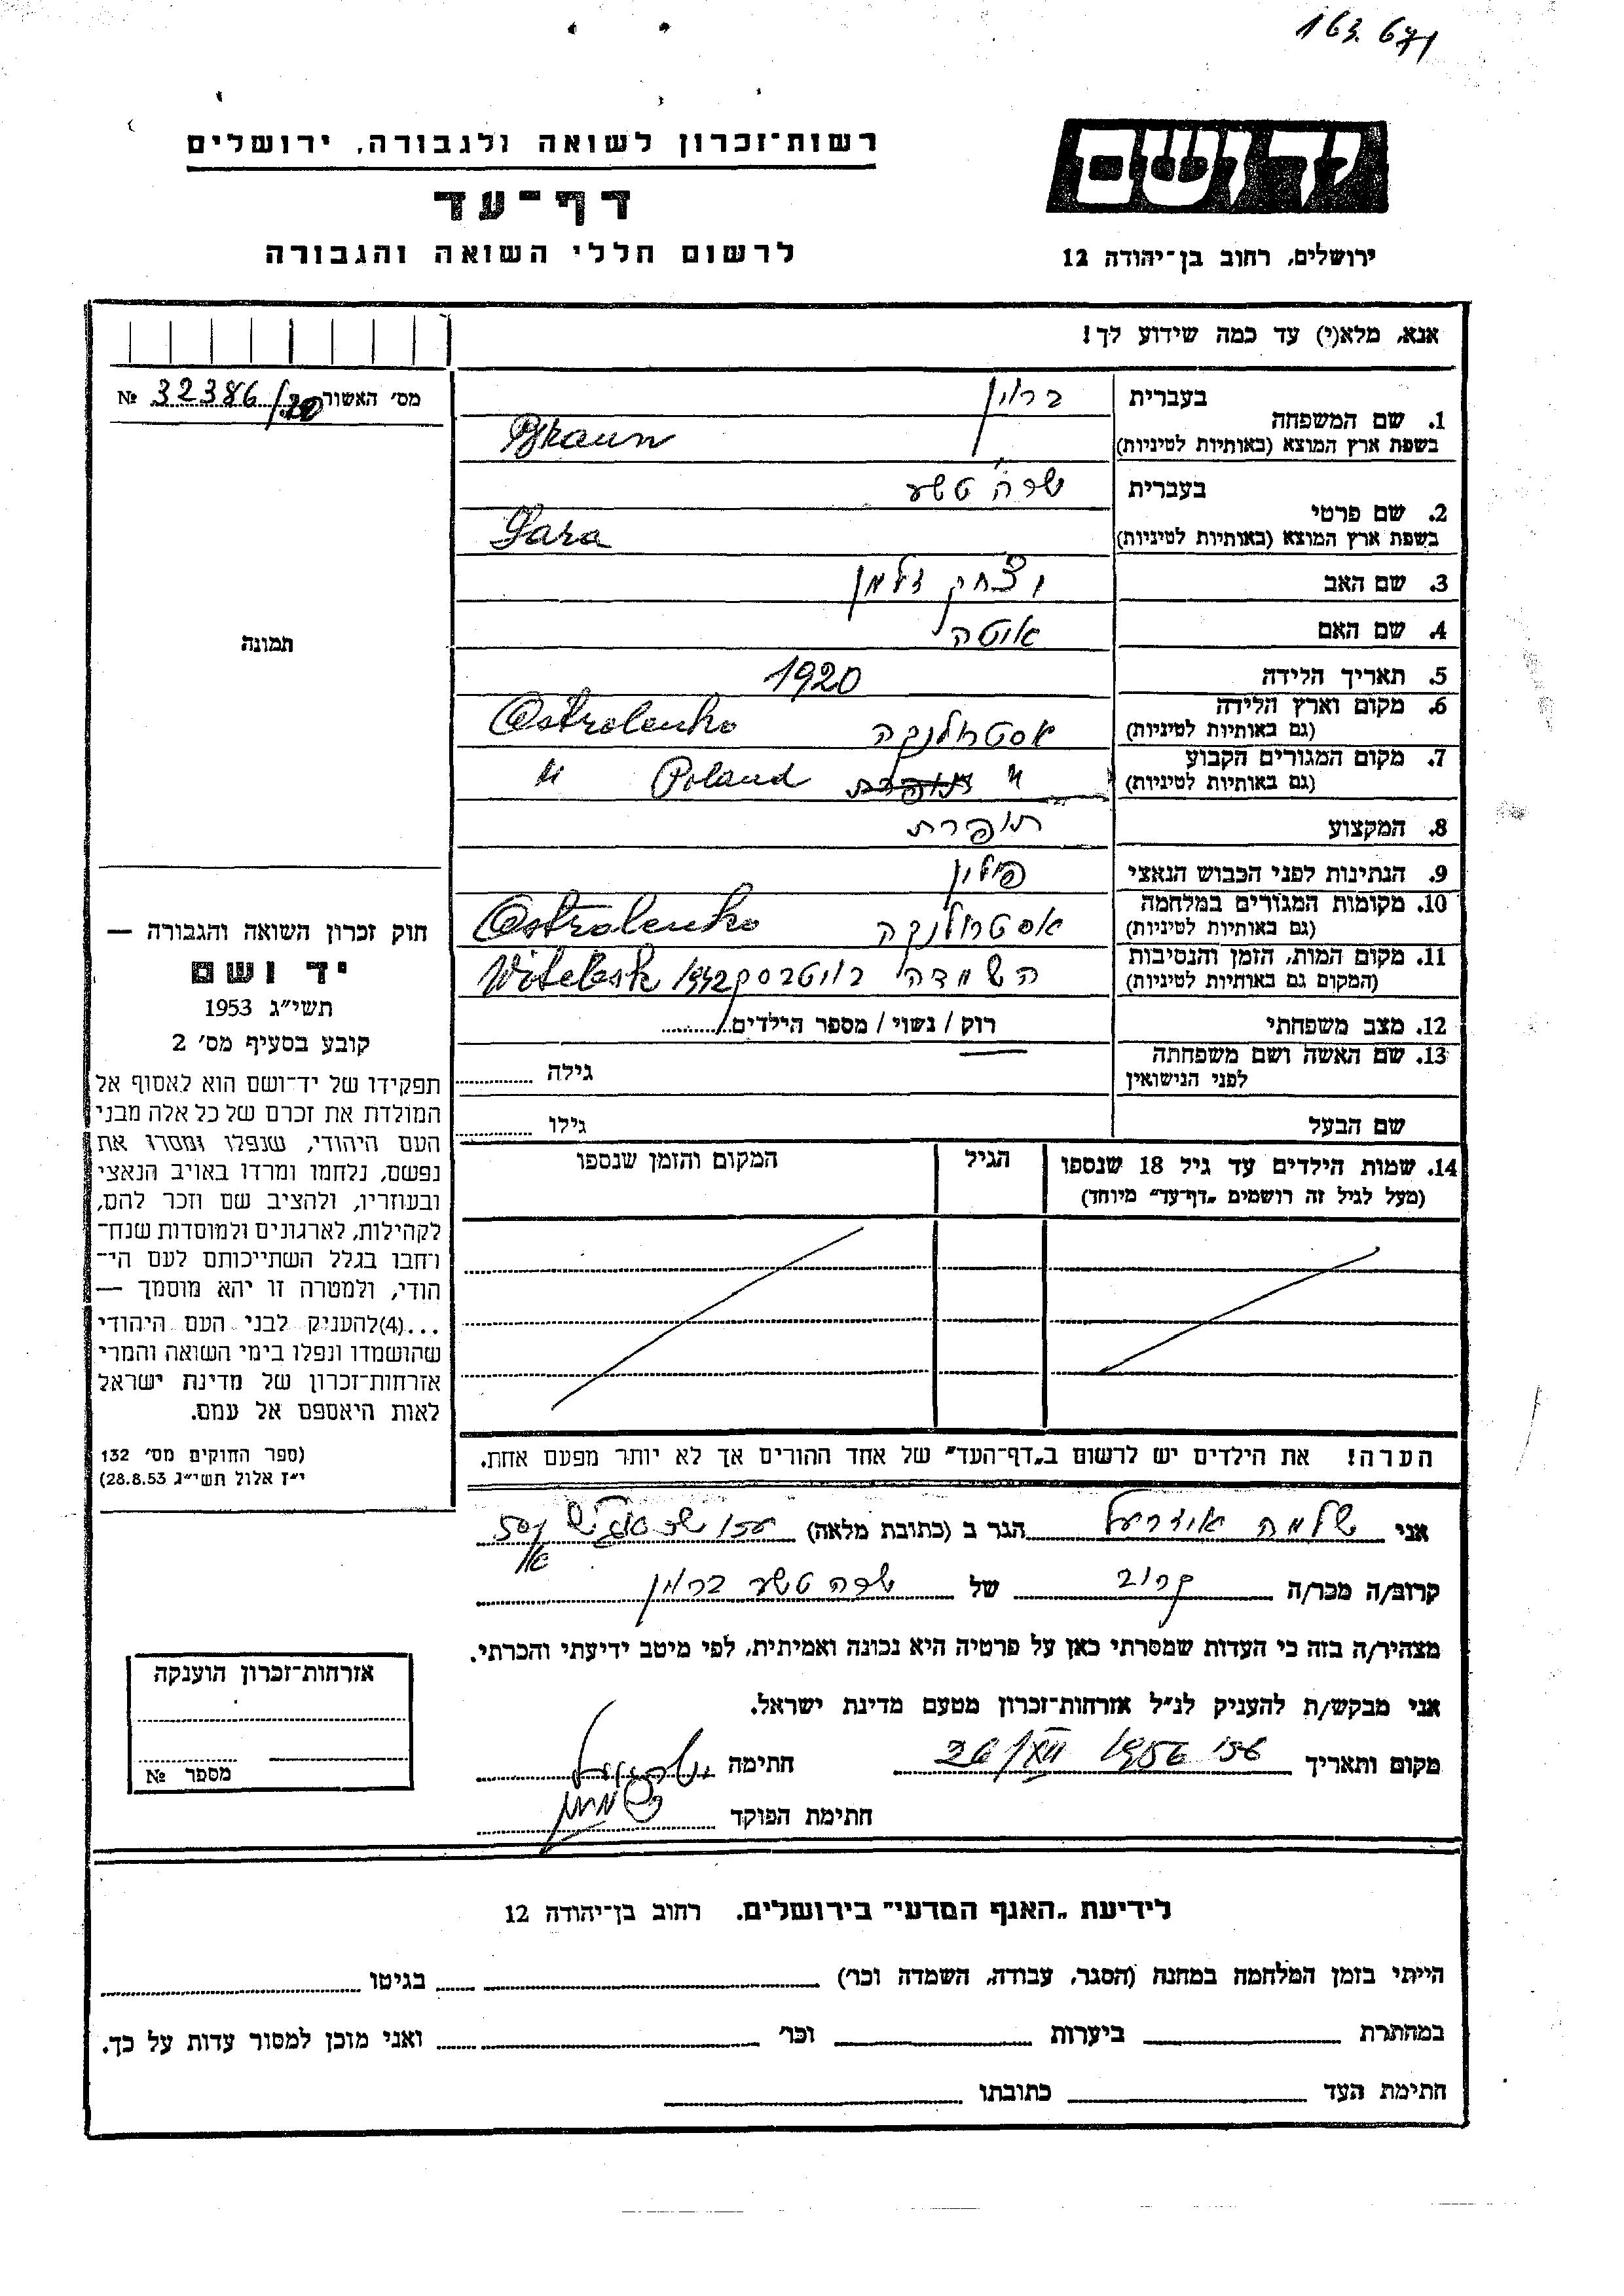 163.671
רשות־זכרון לשואה ולגבורה, ירושלים
דף־עד
לרשום חללי השואה והגבורה
יד ושם
ירושלים, רחוב בן־יהודה 12
אנא, מלא(י) עד כמה שידוע לך!
מס׳ האשור 32386/ №
1. שם המשפחה
בעברית ברוין
בשפת ארץ המוצא (באותיות לטיניות) Braun
2. שם פרטי
בעברית שרה טשע
בשפת ארץ המוצא (באותיות לטיניות) Sara
3. שם האב יצחק זלמן
4. שם האם איטה
5. תאריך הלידה 1920
6. מקום וארץ הלידה
(גם באותיות לטיניות) אסטרולנקה Ostrolenko
7. מקום המגורים הקבוע
(גם באותיות לטיניות) " Poland "
8. המקצוע תופרת
9. הנתינות לפני הכבוש הנאצי פולין
10. מקומות המגורים במלחמה
(גם באותיות לטיניות) אסטרולנקה Ostrolenko
11. מקום המות, הזמן והנסיבות
(המקום גם באותיות לטיניות) השמדה ויטבסק 1942 Witebsk
12. מצב משפחתי רוק / נשוי / מספר הילדים
13. שם האשה ושם משפחתה
לפני הנישואין גילה
שם הבעל גילו
14. שמות הילדים עד גיל 18 שנספו הגיל המקום והזמן שנספו
(מעל לגיל זה רושמים „דף־עד״ מיוחד)
הערה! את הילדים יש לרשום ב„דף־העד״ של אחד ההורים אך לא יותר מפעם אחת.
תמונה
חוק זכרון השואה והגבורה —
יד ושם
תשי״ג 1953
קובע בסעיף מס׳ 2
תפקידו של יד־ושם הוא לאסוף אל
המולדת את זכרם של כל אלה מבני
העם היהודי, שנפלו ומסרו את
נפשם, נלחמו ומרדו באויב הנאצי
ובעוזריו, ולהציב שם וזכר להם,
לקהילות, לארגונים ולמוסדות שנח־
רחבו בגלל השתייכותם לעם הי־
הודי, ולמטרה זו יהא מוסמך —
...(4)להעניק לבני העם היהודי
שהושמדו ונפלו בימי השואה והמרי
אזרחות־זכרון של מדינת ישראל
לאות היאספם אל עמם.
(ספר החוקים מס׳ 132
י״ז אלול תשי״ג 28.8.53)
אני שלמה הגר ב (כתובת מלאה)
קרוב/ה מכר/ה קרוב של שרה טשע ברוין
מצהיר/ה בזה כי העדות שמסרתי כאן על פרטיה היא נכונה ואמיתית, לפי מיטב ידיעתי והכרתי.
אני מבקש/ת להעניק לנ״ל אזרחות־זכרון מטעם מדינת ישראל.
מקום ותאריך 26/XII 1956 חתימה
חתימת הפוקד
אזרחות־זכרון הוענקה
מספר №
לידיעת „האגף המדעי״ בירושלים. רחוב בן־יהודה 12
הייתי בזמן המלחמה במחנה (הסגר, עבודה, השמדה וכו׳) בגיטו
במחתרת ביערות וכו׳ ואני מוכן למסור עדות על כך.
חתימת העד כתובתו